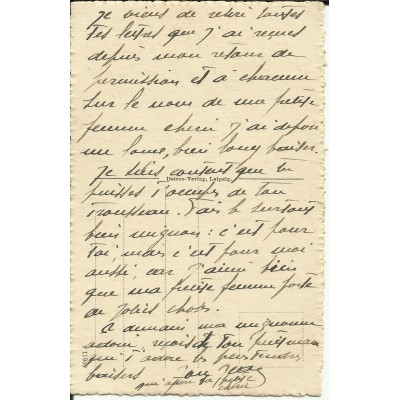 Je viens de relire toutes
tes lettres que j'ai reçues
depuis mon retour de
permission et à chacune
sur le nom de ma petite
femme chérie j'ai déposé
un long, bien long baiser.
Je suis content que tu
Detere-Verlag, Leipzig
puisses t'occuper de ton
trousseau. Fais le surtout
bien mignon : c'est pour
toi, mais c'est pour moi
aussi, car j'aime bien
que ma petite femme porte
de jolies choses.
A demain ma mignonne
adorée, reçois de ton petit mari
qui t'adore les plus tendres
baisers Ton
qui